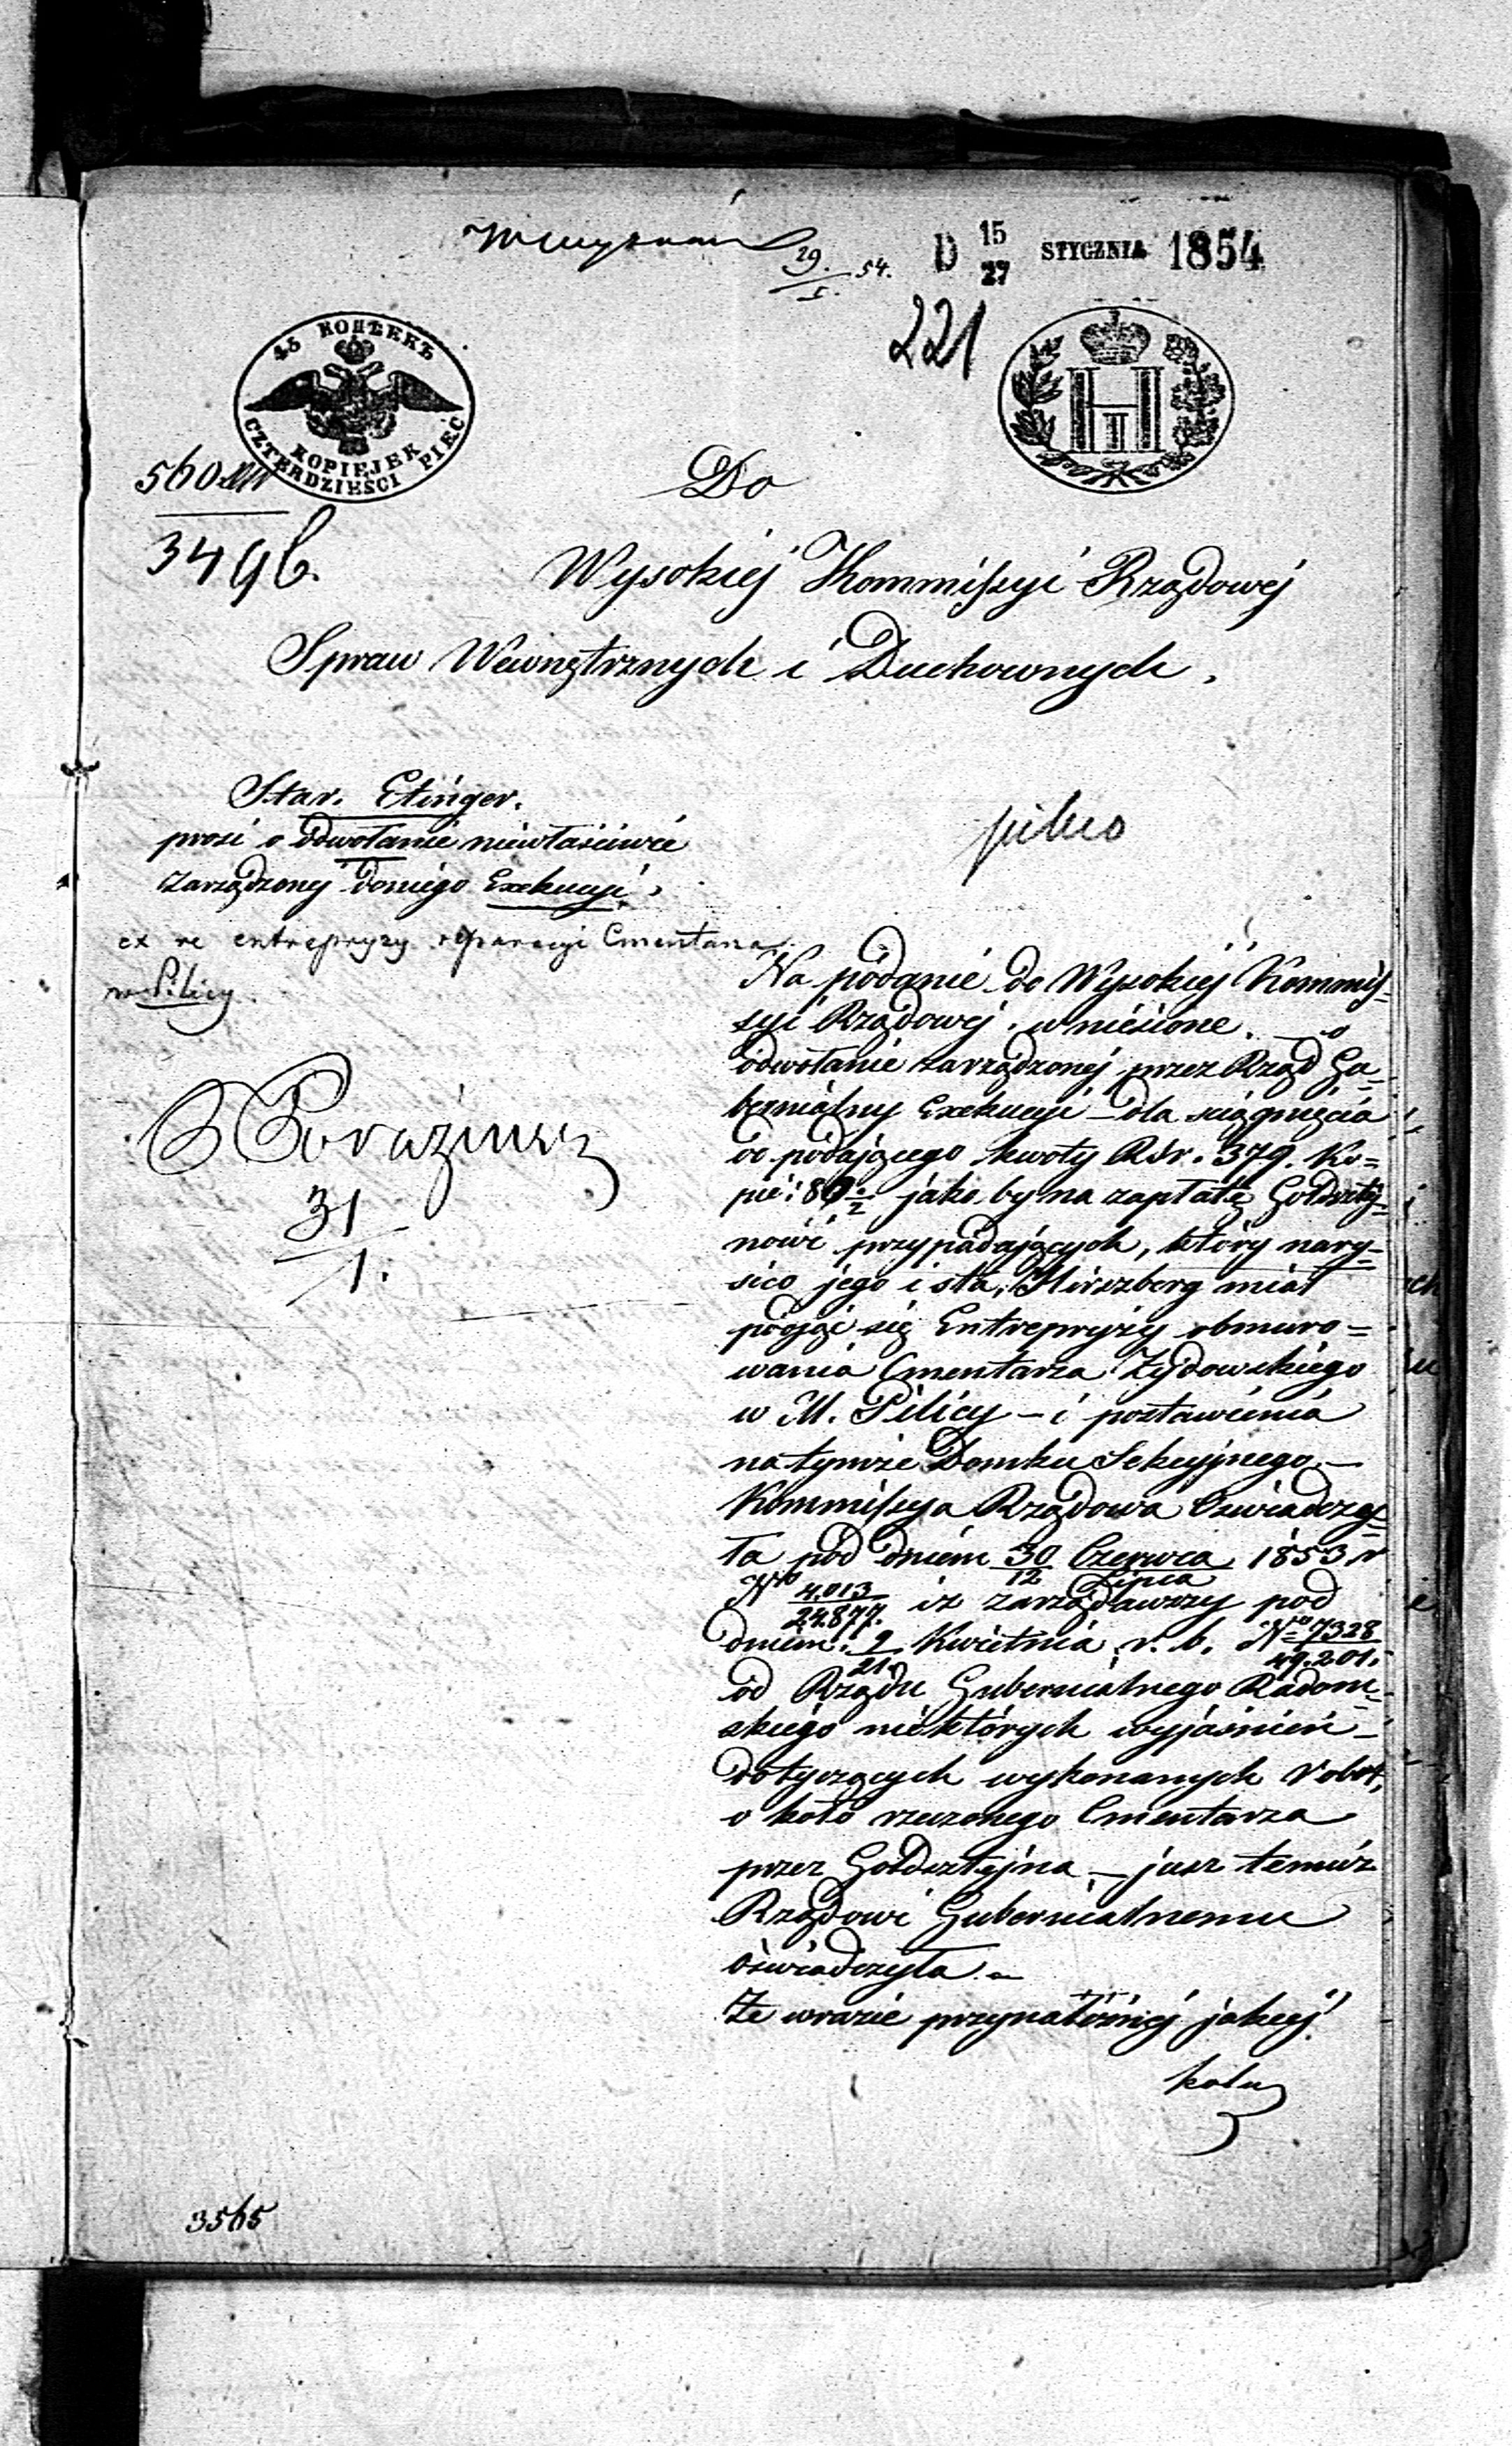 29./I. 54.
D 15/27 STYCZNIA 1854
221
45 КОПѢЕКЪ
KOPIEJEK
CZTERDZIEŚCI PIEĆ
НI
560
3496.
Do
Wysokiéj Kommissyi Rządowéj
Spraw Wewnętrznych i Duchownych.
Star. Etinger.
prosi o odwołanie niewłaściwie
zarządzonej doniego Exekucyi,
ex re entrepryzy reparacyi Cmentarza
w Pilicy.
pilno
31/1.
Na podanie do Wysokiéj Kommis=
syi Rządowéj wniesione, o
odwołanie zarządzonéj przez Rząd Gu=
bernialny Exekucyi dla sciągnięcia
od podającego kwoty Rsr. 379. Ko=
pie: 8 1/2 jako by na zapłatę Goldszty=
nowi przypadających, który na ry=
sico jego i sta. Hirszberg miał
podjąć się Entrepryzy obmuro=
wania Cmentarza Żydowskiego
w M. Pilicy – i postawienia
na tymże Domku Sekcyjnego. –
Kommissya Rządowa Oświadczy=
ła pod dniem 30 Czerwca/12 Lipca 1853 r
No 4.013/24.877. iż zarządawszy pod
dniem: 9/21 Kwietnia r. b. No 7328/49.201.
od Rządu Gubernialnego Radom=
skiego niektórych wyjaśnień –
dotyczących wykonanych robot,
o koło rzeczonego Cmentarza
przez Goldsztejna, – jusz temuż
Rządowi Gubernialnemu
oświadczyła. –
Że wrazie przynależnéj jakiéj
kolu
3565